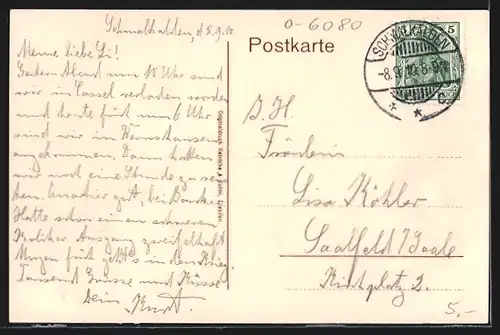 Schmalkalden, d 8.9.10
Meine liebe Li!
Gestern Abend um 10 Uhr sind
wir in Cassel verladen worden
und heute früh um 6 Uhr
sind wir in Wernshausen
angekommen. Dann hatten
wir noch eine Stunde zu
gut, bei
Hatte schon einen schweren
Ausgang zweifelhaft
Morgen früh geht's in den Krieg.
Tausend Grüsse und Küsse
Dein Kurt.
0-6080
Postkarte
SCHMALKALDEN
-8.9.10.8-9N.
5
S. H.
Fräulein
Lisa Köhler
Saalfeld / Saale
Kirchplatz 2.
5.-